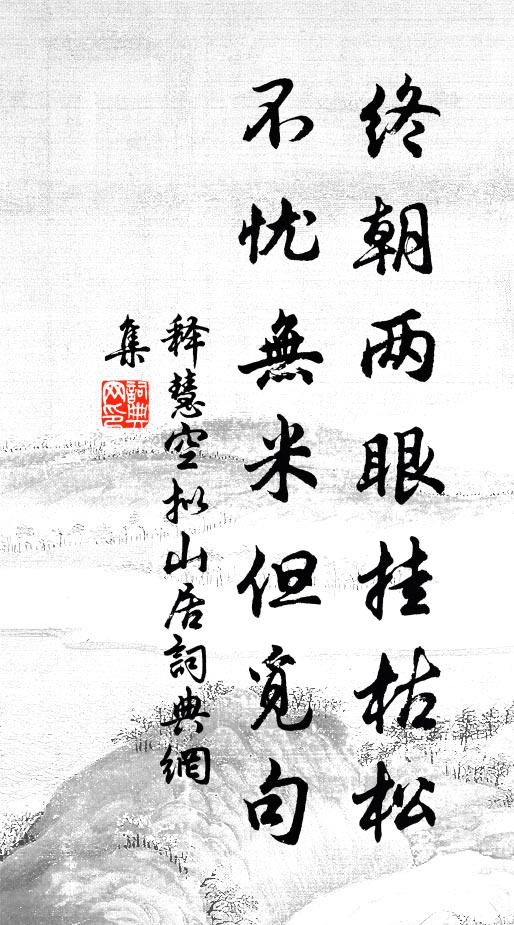 终朝两眼挂枯松
不忧無米但觅句
释慧空拟山居詞典網
集
詞典
网印